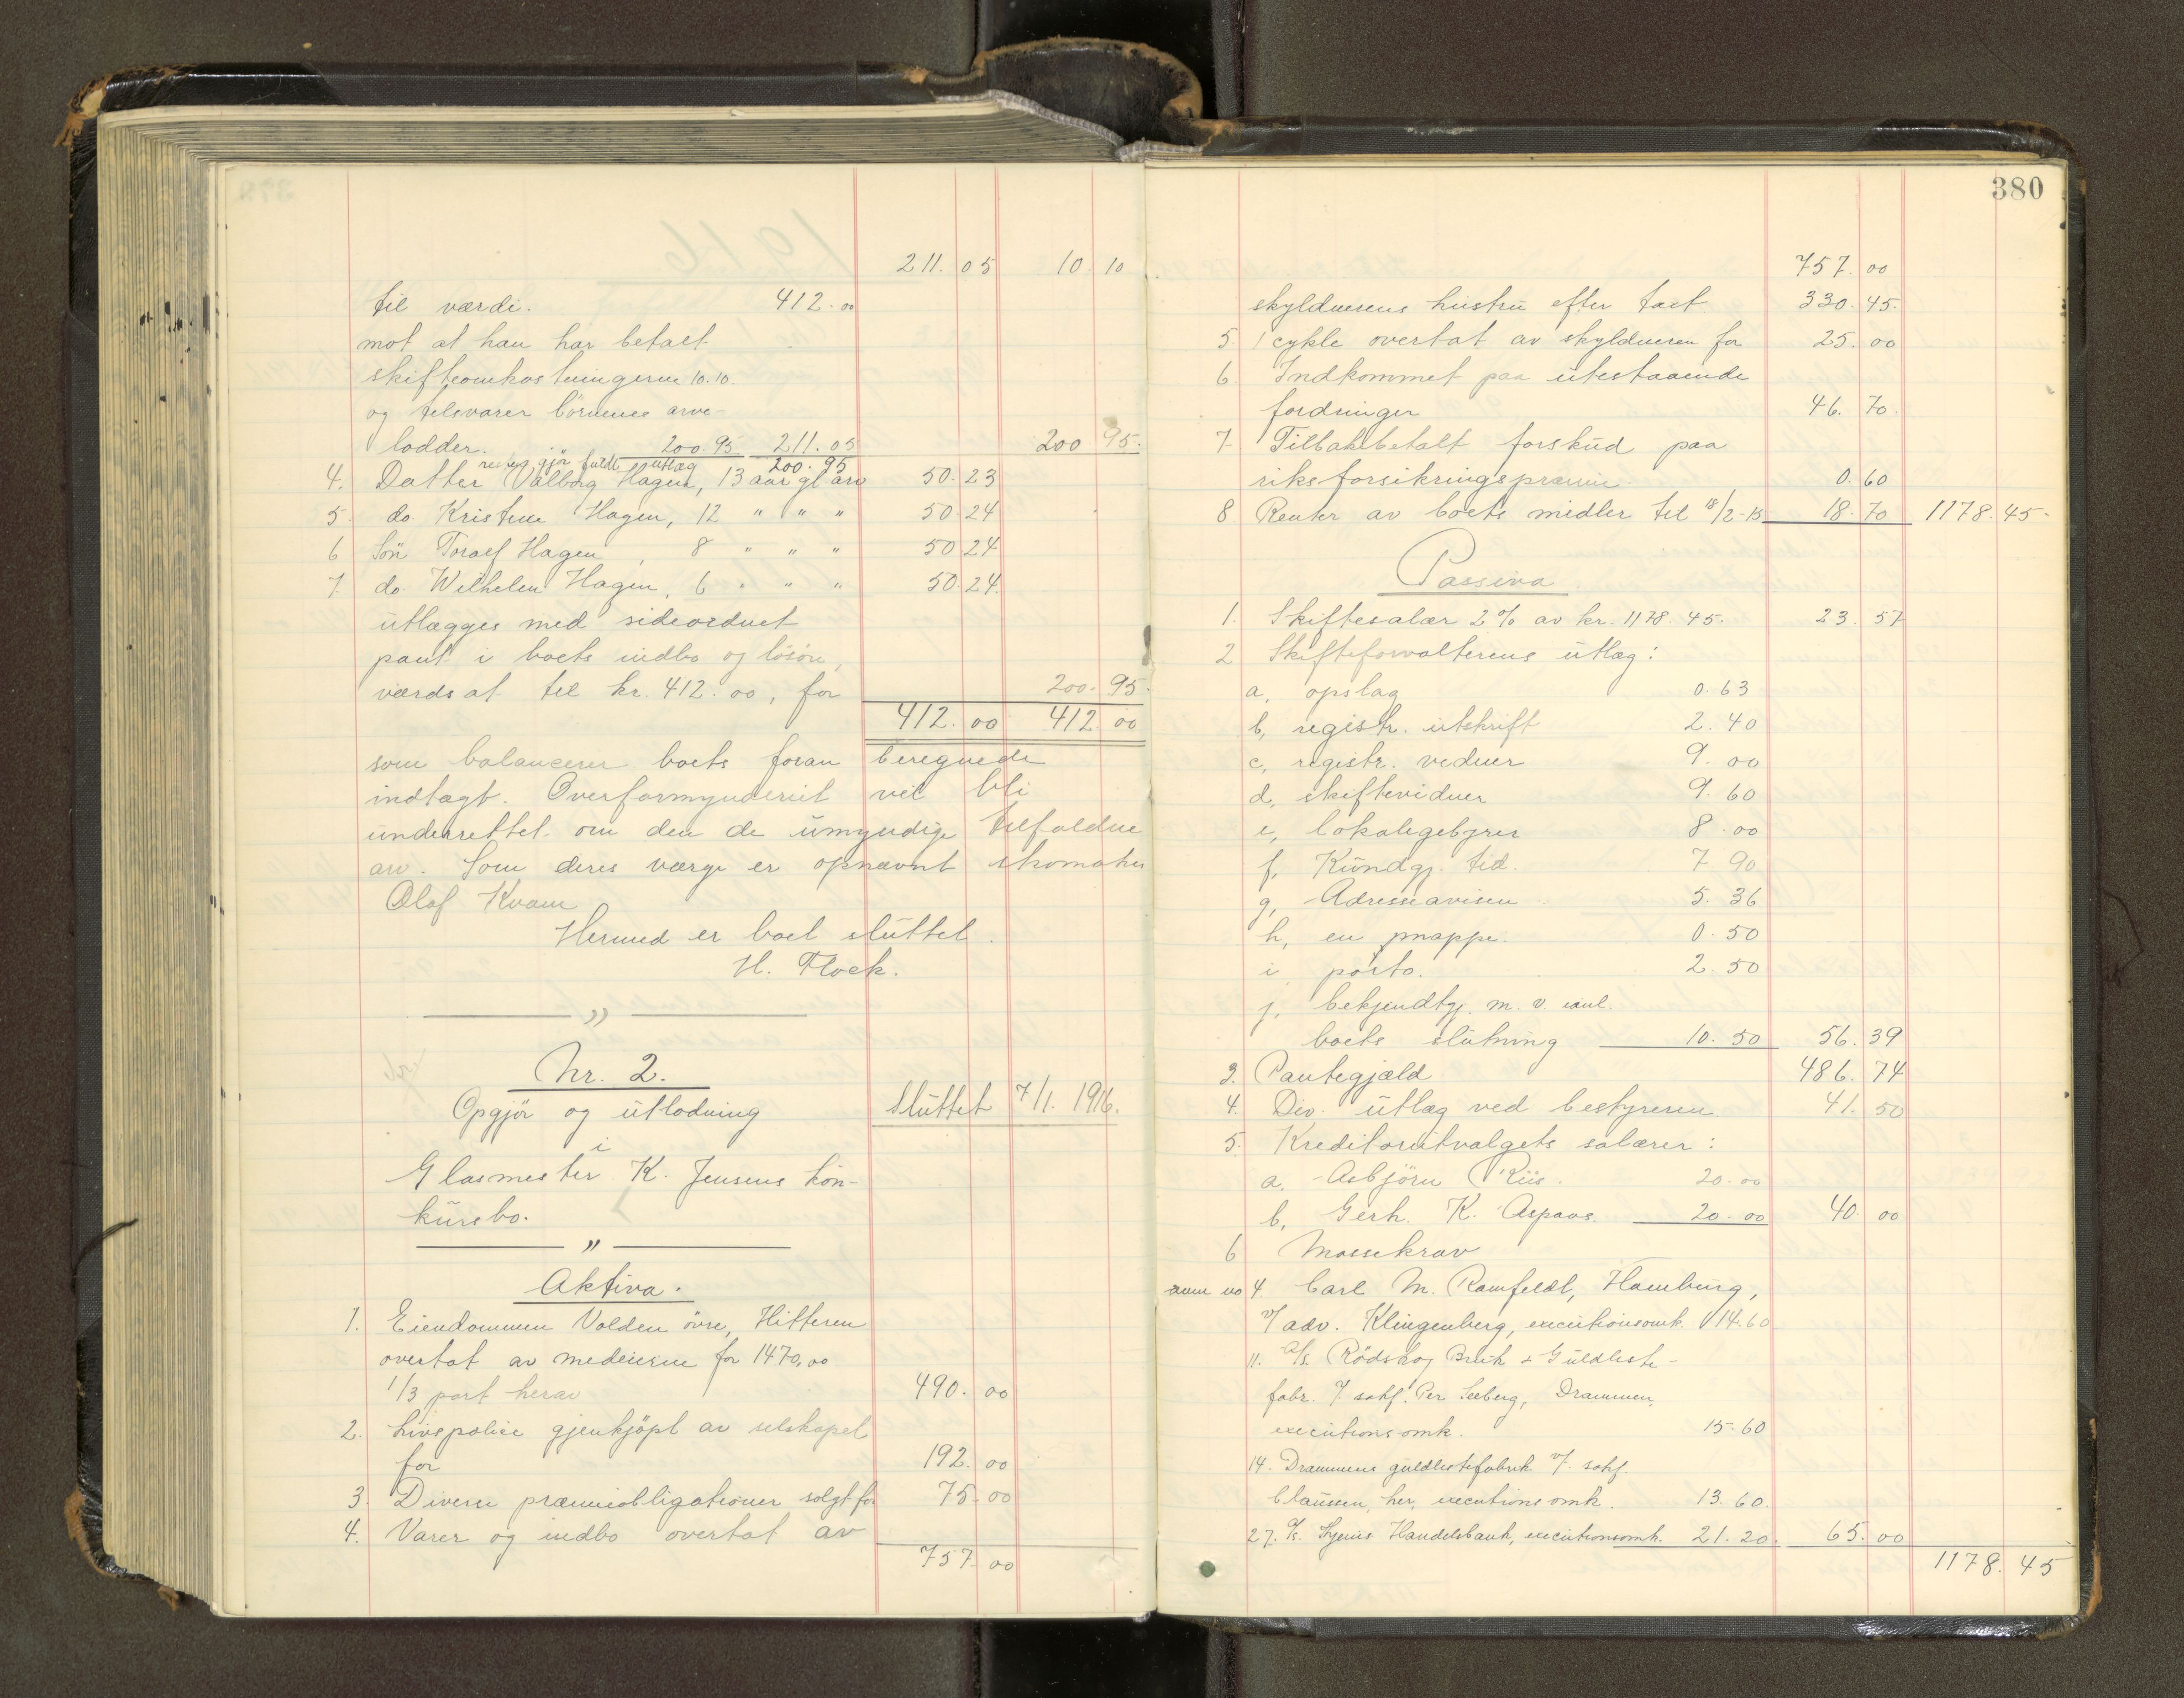 211. 05 10. 10
til værdi. 412.00
mot at han har betalt
skifteomkostningerne 10.10.
og tilsvarer börnenes arve-
lodder. 200.95 211.05 200 95.
resten gjör fuldt utlæg 200.95
4. Datter Valborg Hagen, 13 aar gl arv 50.23
5 do. Kristine Hagen, 12 " " " 50 24
6 Sön Toralf Hagen, 8 " " " 50 24
7. do. Wilhelm Hagen, 6 " " " 50.24
utlægges med sideordnet
pant i boets indbo og lösöre,
værdsat til kr. 412.00, for 200.95.
412.00 412 00
som balancerer boets foran beregnede
indtægt. Overformynderiet vil bli
underrettet om den de umyndige tilfaldne
arv. Som deres værge er opnævnt skomaker
Olaf Kvam
Hermed er boet sluttet.
H. Flock.
"
Nr. 2.
Opgjör og utlodning Sluttet 7/1. 1916.
i
Glasmester K. Jensens kon-
kursbo.
"
Aktiva.
1. Eiendommen Volden övre, Hitteren
overtat av medeierne for 1470,00
1/3 part herav 490.00
2. Livspolice gjenkjöpt av selskapet
for 192.00
3. Diverse præmieobligationer solgt for 75.00
4. Varer og indbo overtat av
757.00
380
757.00
skyldnerens hustru efter taxt 330.45.
5. 1 cykle overtat av skyldneren for 25.00
6. Indkommet paa utestaaende
fordringer 46.70.
7. Tilbakebetalt forskud paa
riksforsikringspræmie. 0.60
8 Renter av boets midler til 18/2-15 18.70 1178.45.
Passiva
1. Skiftesalær 2% av kr. 1178.45. 23.57
2 Skifteforvalterens utlæg:
a, opslag 0.63
b, registr. utskrift 2.40
c, registr. vidner 9.00
d, skiftevidner 9.60
e, lokalegebyrer 8.00
f, Kundgj. tid. 7 90
g, Adresseavisen 5.36
h, en mappe. 0.50
i porto. 2.50
j, bekjendtgj. m. v. anl.
boets slutning 10.50 56.39
3. Pantegjæld 486.74
4. Div. utlæg ved bestyreren. 41.50
5. Kreditorutvalgets salærer:
a. Asbjörn Riis. 20.00
b, Gerh. K. Aspaas. 20.00 40.00
6 Massekrav
anm no 4. Carl M. Ramfeldt, Hamburg,
v/ adv. Klingenberg, executionsomk. 14.60
11. A/s. Rödskog Bruk & Guldliste-
fabr. v/ sakf. Per Seeberg, Drammen,
executionsomk. 15.60
14. Drammens guldlistefabrik v/ sakf.
Claussen, her, executionsomk. 13.60.
27. A/s. Kjeries Handelsbank, executionsomk. 21.20. 65.00
1178.45